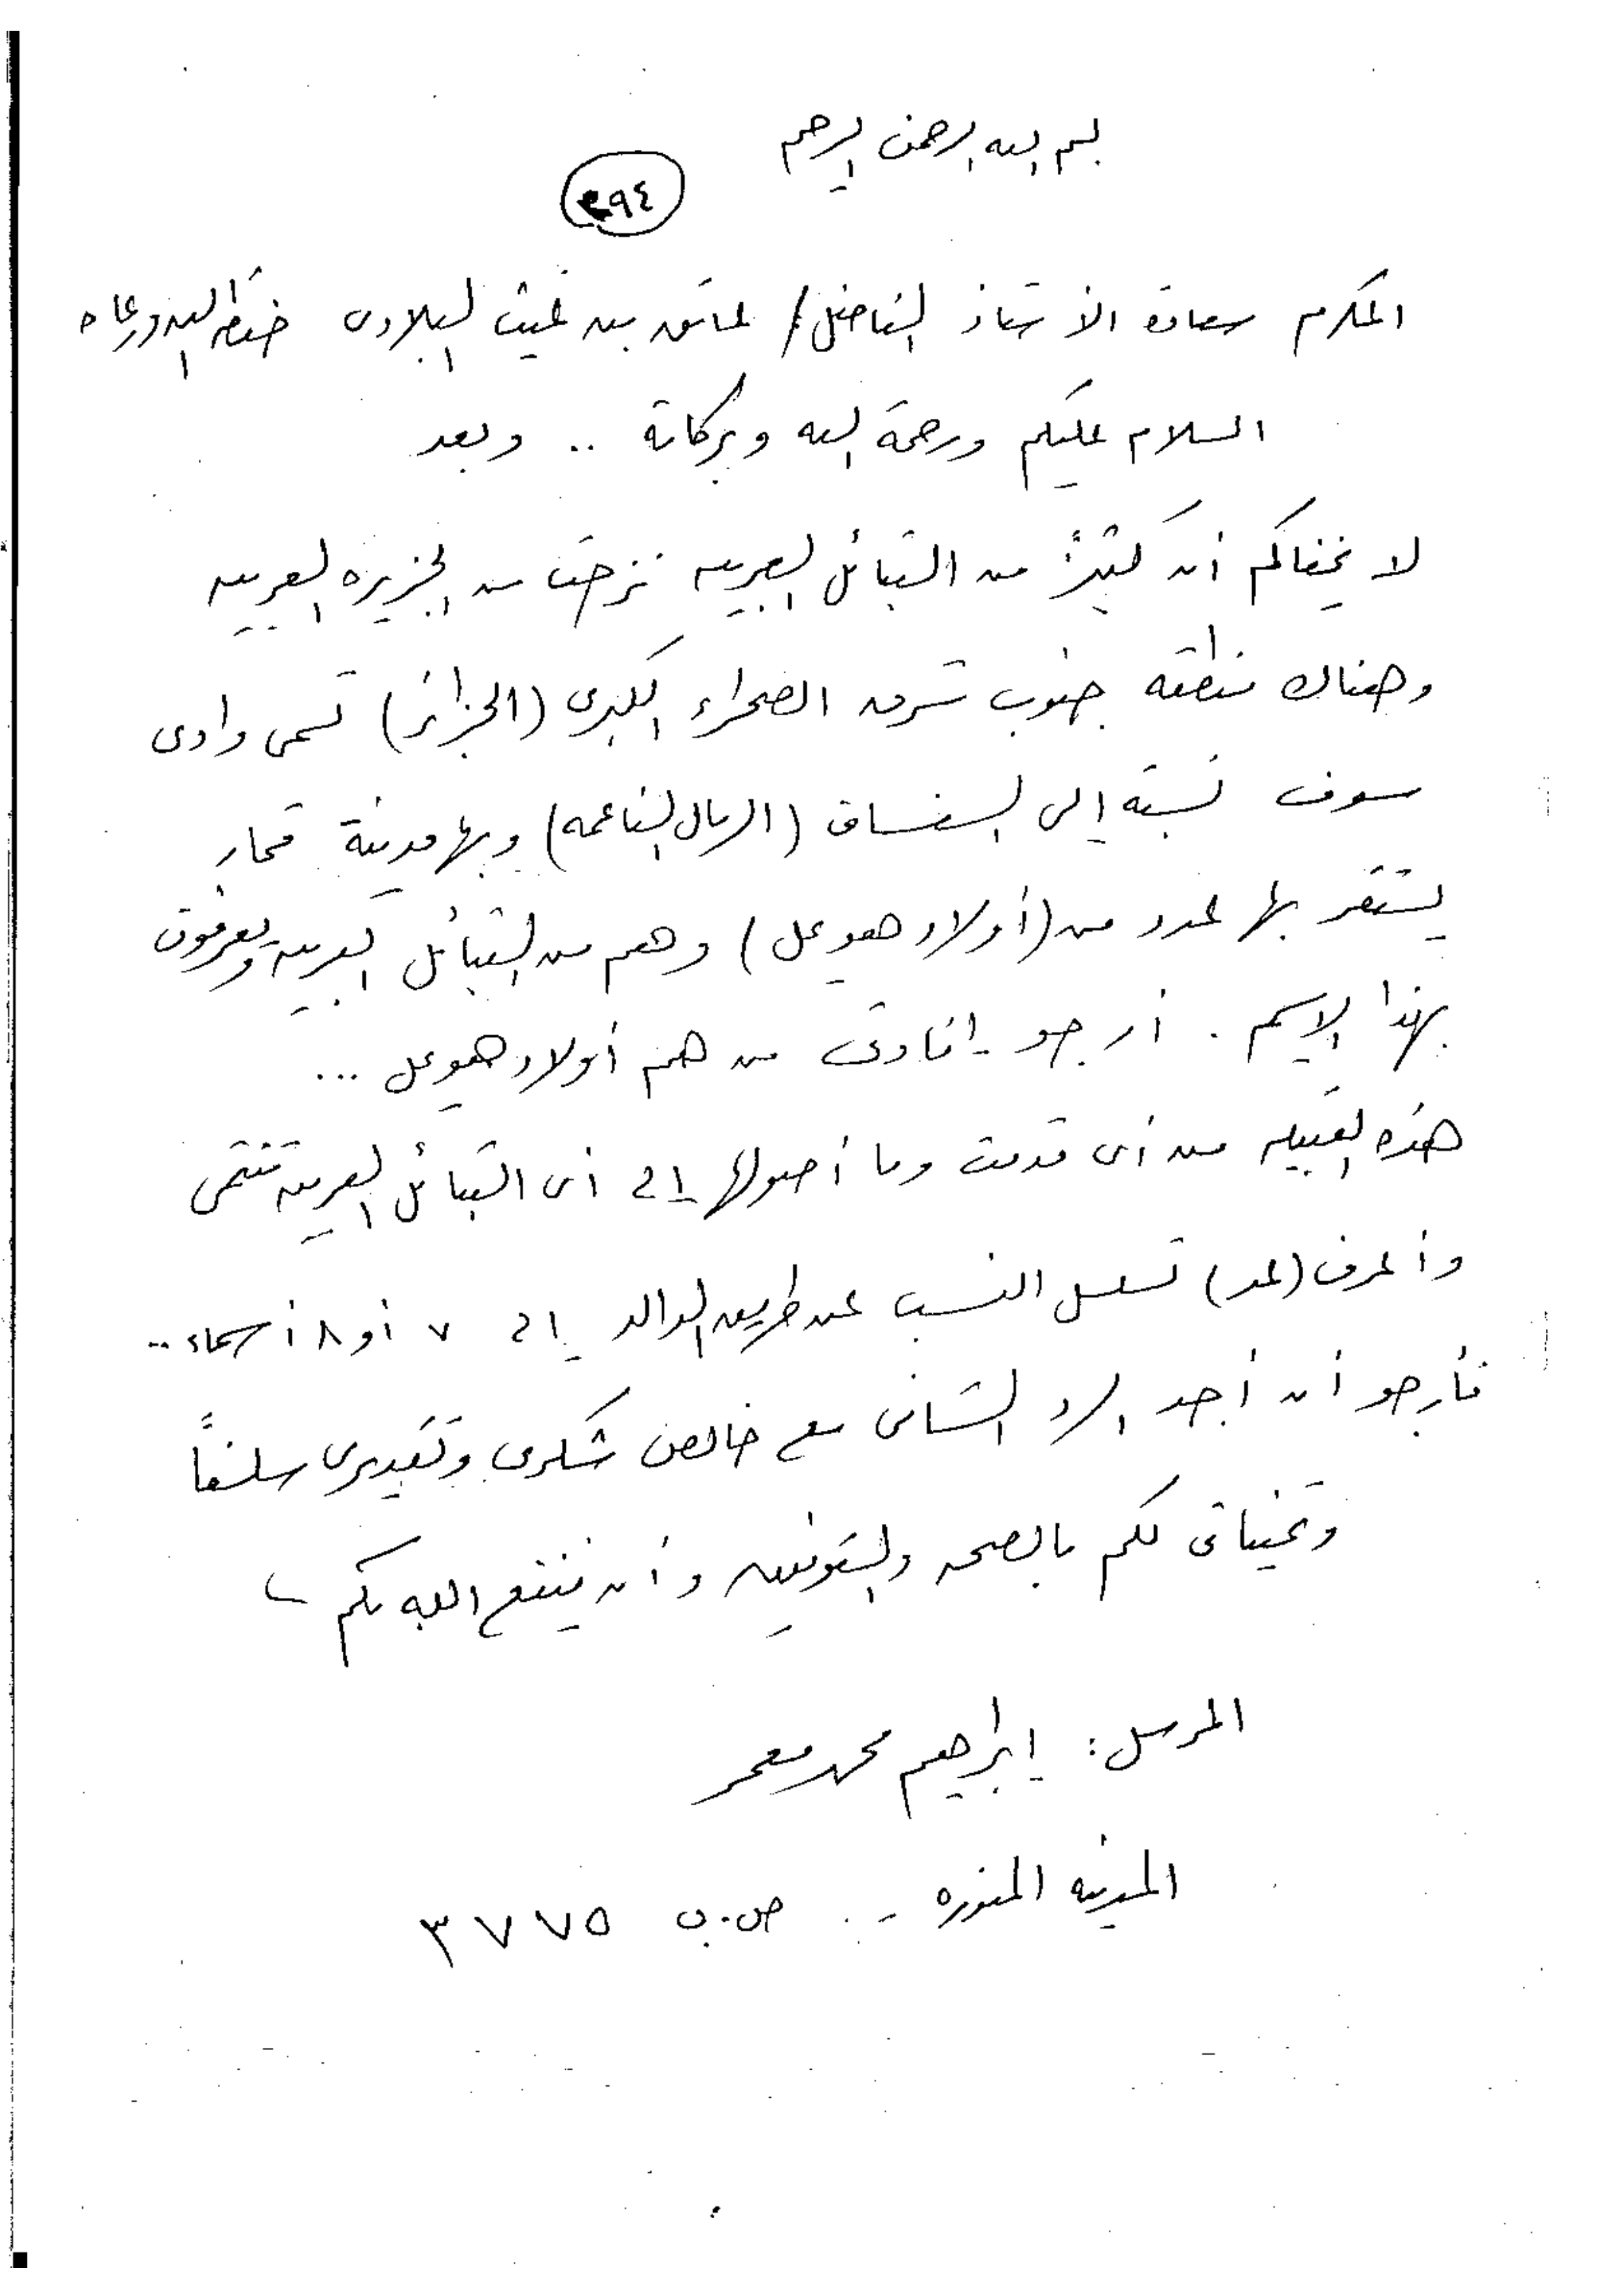 بسم الله الرحمن الرحيم
٩٤
المكرم سعادة الأستاذ الفاضل / عاتق بن غيث البلادى حفظه الله ورعاه
السلام عليكم ورحمة الله وبركاتة .. وبعد
لا يخفاكم أن كثيراً من القبائل العربيه نزحت من الجزيره العربيه
وهناك منطقه جنوب شرق الصحراء الكبرى (الجزائر) تسمى وادى
سوف نسبته إلى السفساف (الرمال الناعمه) وبها مدينة قمار
يستقر بها عدد من (أولاد هويمل) وهم من القبائل العربيه ويعرفون
بهذا الإسم . أرجو إفادتى من هم أولاد هويمل ...
هذه القبيله من أى قدمت وما أصولها إلى أى القبائل العربيه تنتمى
وأعرف (عد) تسلسل النسب عن طريق الوالد إلى ٧ أو ٨ أسماء ..
فأرجو أن أجد الرد الشافى مع خالص شكرى وتقديرى سلفاً
وتمنياتى لكم بالصحه والتوفيق وأن ينفع الله بكم
المرسل : إبراهيم محمد معمر
المدينه المنوره - ص.ب ٣٧٧٥